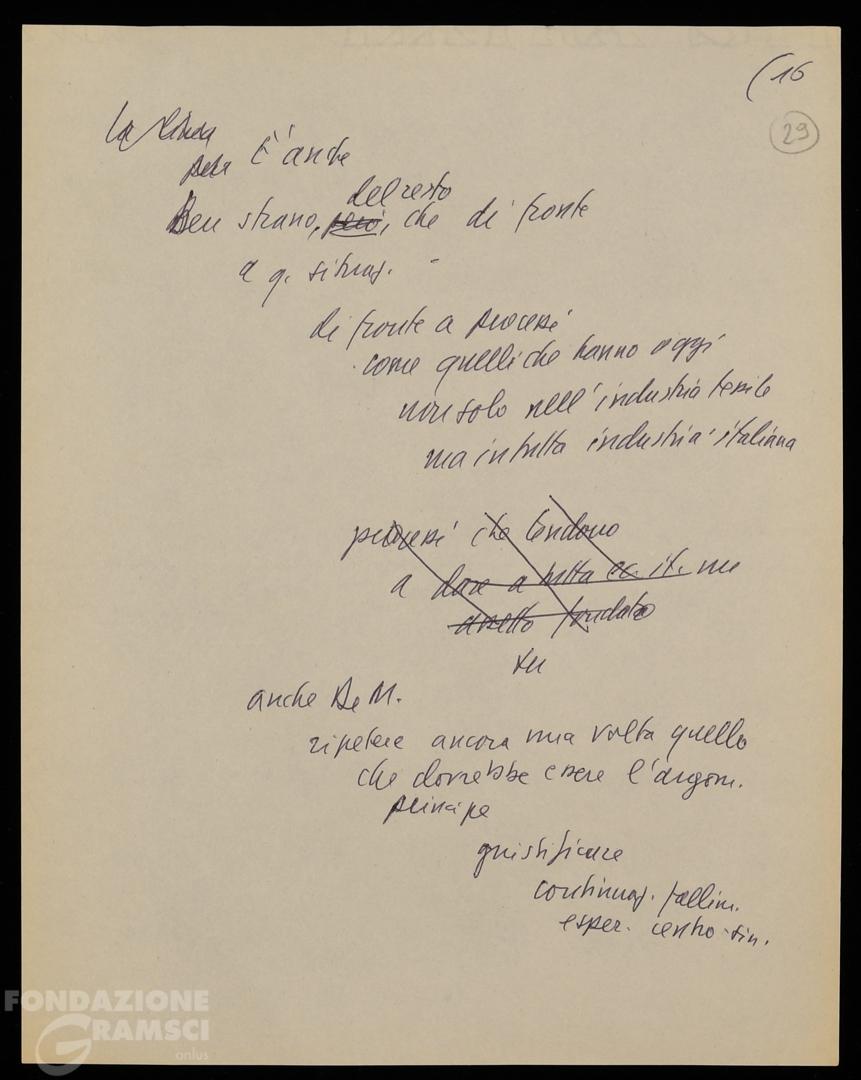 (16
29
La
È anche
del resto
Ben strano, però, che di fronte
a q. situaz. -
di fronte a processi
come quelli che hanno oggi
non solo nell'industria tessile
ma in tutta industria italiana
processi che tendono
a dare a tutta ec. it. un
assetto fondato
su
anche De M.
ripetere ancora una volta quello
che dovrebbe essere l'argom.
principe
giustificare
continuaz. fallim.
esper. centro-sin.
FONDAZIONE
GRAMSCI
onlus